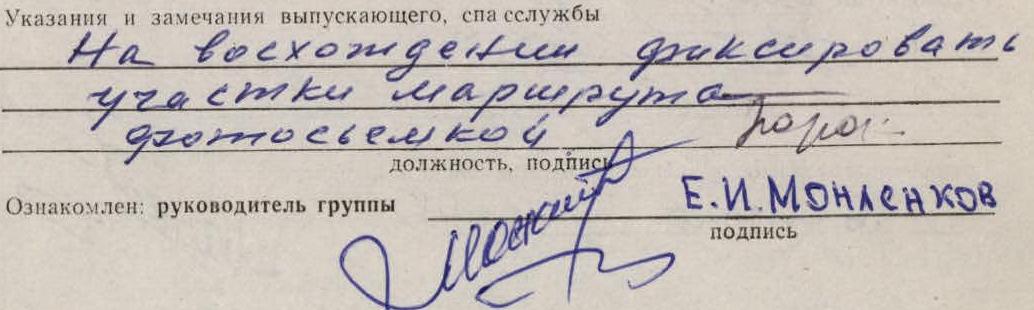 Указания и замечания выпускающего, спасслужбы
На восхождении фиксировать
участки маршрута
фотосъемкой
должность, подпись
Ознакомлен: руководитель группы Е.И.Монаенков
подпись